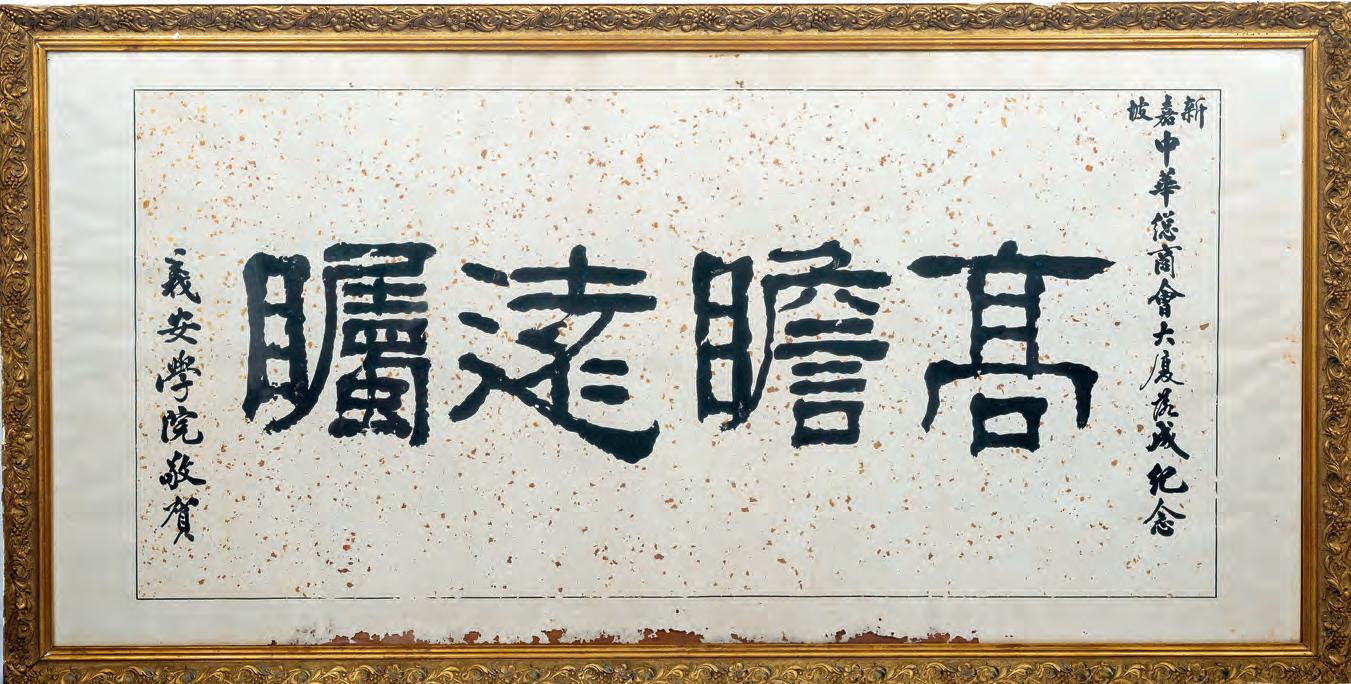 新嘉坡
中華總商會大廈落成紀念
高瞻遠矚
義安學院敬賀